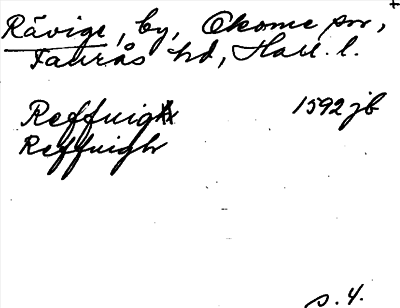 Rävige, by, Okome sn,
Faurås hd, Hall. l.
Reffuigh 1592 jb
Reffuigh
s. 4.